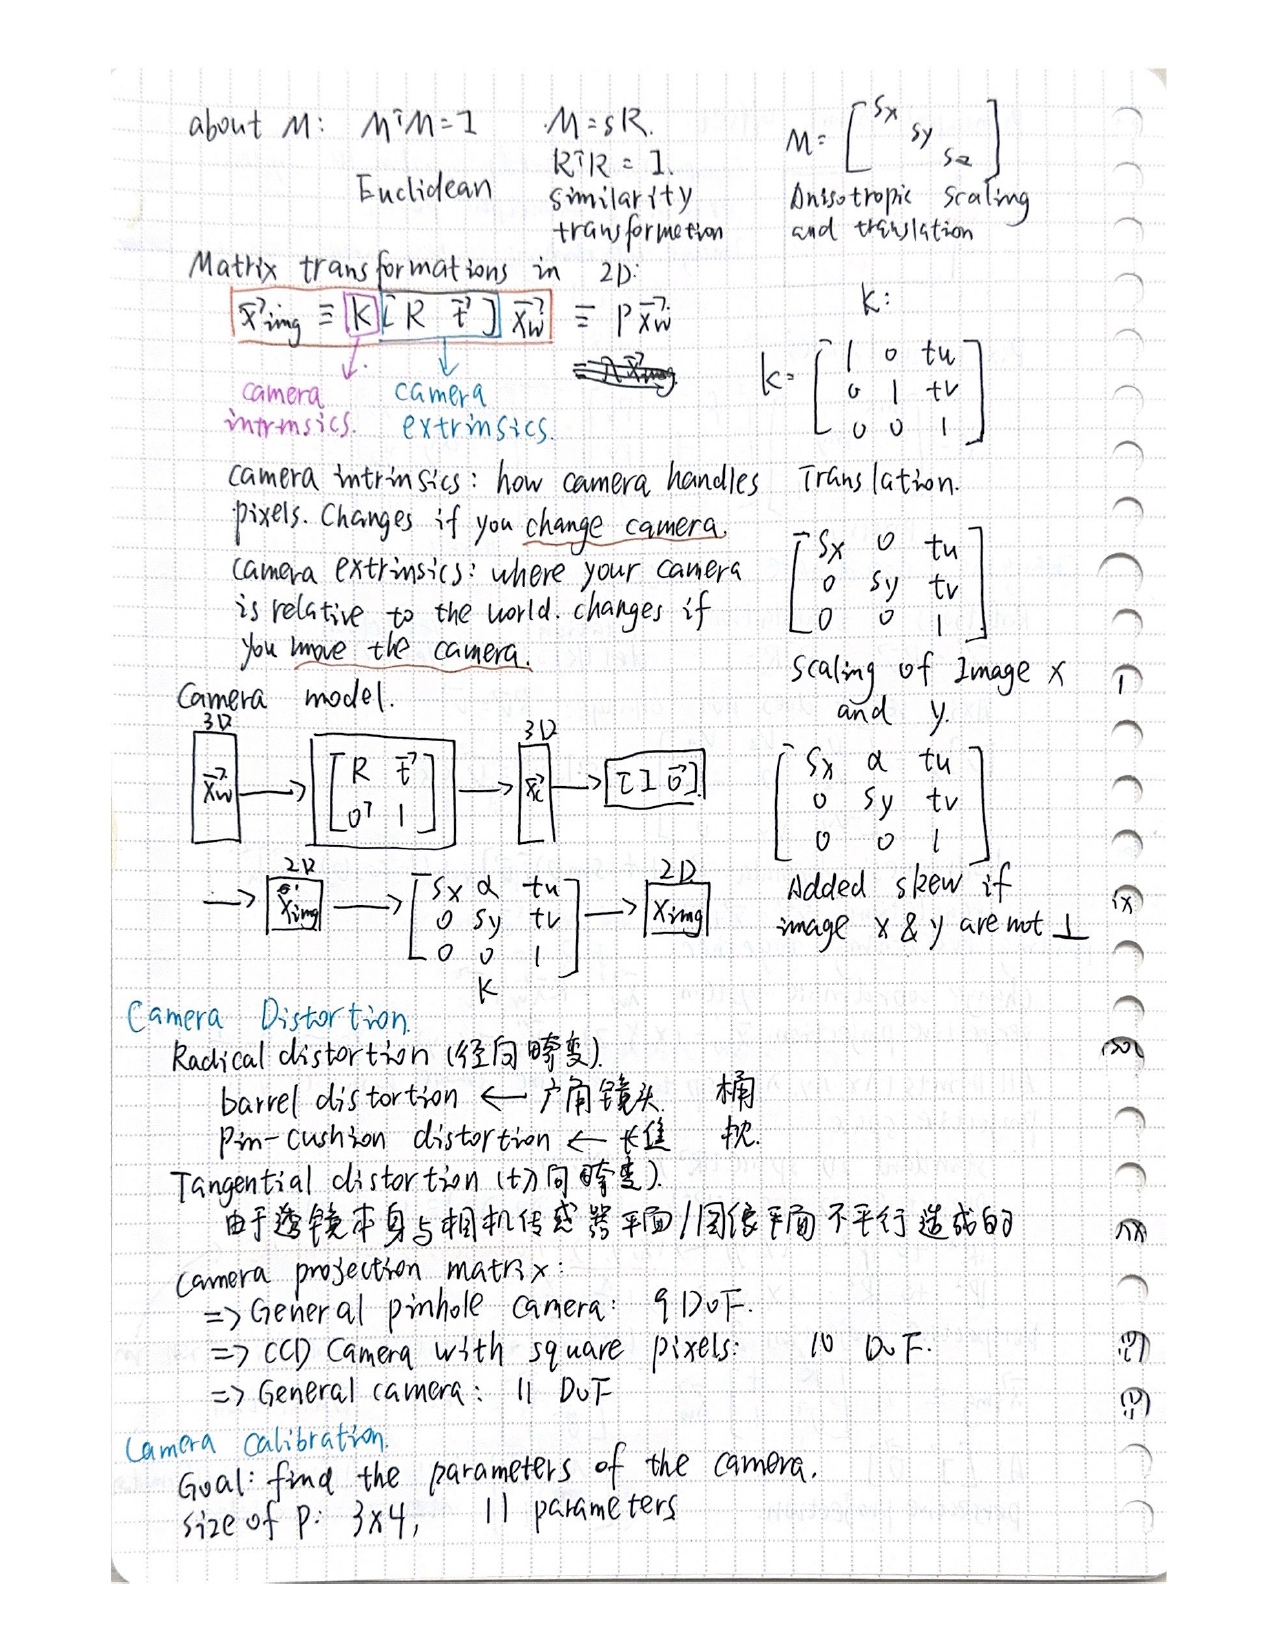 about M: MᵀM=I M=sR.
RᵀR = I.
Euclidean similarity
transformetion
M= [ Sx
Sy
Sz ]
Anisotropic scaling
and translation
Matrix transformations in 2D:
x⃗img ≡ K [ R t⃗ ] x⃗w ≡ P x⃗w
camera
intrinsics.
camera
extrinsics.
K:
K= [ 1 0 tu
0 1 tv
0 0 1 ]
Translation.
camera intrinsics: how camera handles
pixels. Changes if you change camera.
camera extrinsics: where your camera
is relative to the world. changes if
you move the camera.
[ Sx 0 tu
0 Sy tv
0 0 1 ]
Scaling of Image x
and y.
Camera model.
3D 3D
x⃗w → [ R t⃗
0ᵀ 1 ] → x⃗c → [ I 0⃗ ]
2D 2D
→ ximg → [ Sx α tu
0 Sy tv
0 0 1 ] → ximg
K
[ Sx α tu
0 Sy tv
0 0 1 ]
Added skew if
image x & y are not ⊥
Camera Distortion.
Radical distortion (径向畸变).
barrel distortion ← 广角镜头. 桶
Pin-cushion distortion ← 长焦 枕.
Tangential distortion (切向畸变).
由于透镜本身与相机传感器平面/图像平面不平行造成的
Camera projection matrix:
=> General pinhole camera: 9 DoF.
=> CCD Camera with square pixels: 10 DoF.
=> General camera: 11 DoF
Camera Calibration.
Goal: find the parameters of the camera.
size of P: 3x4, 11 parameters